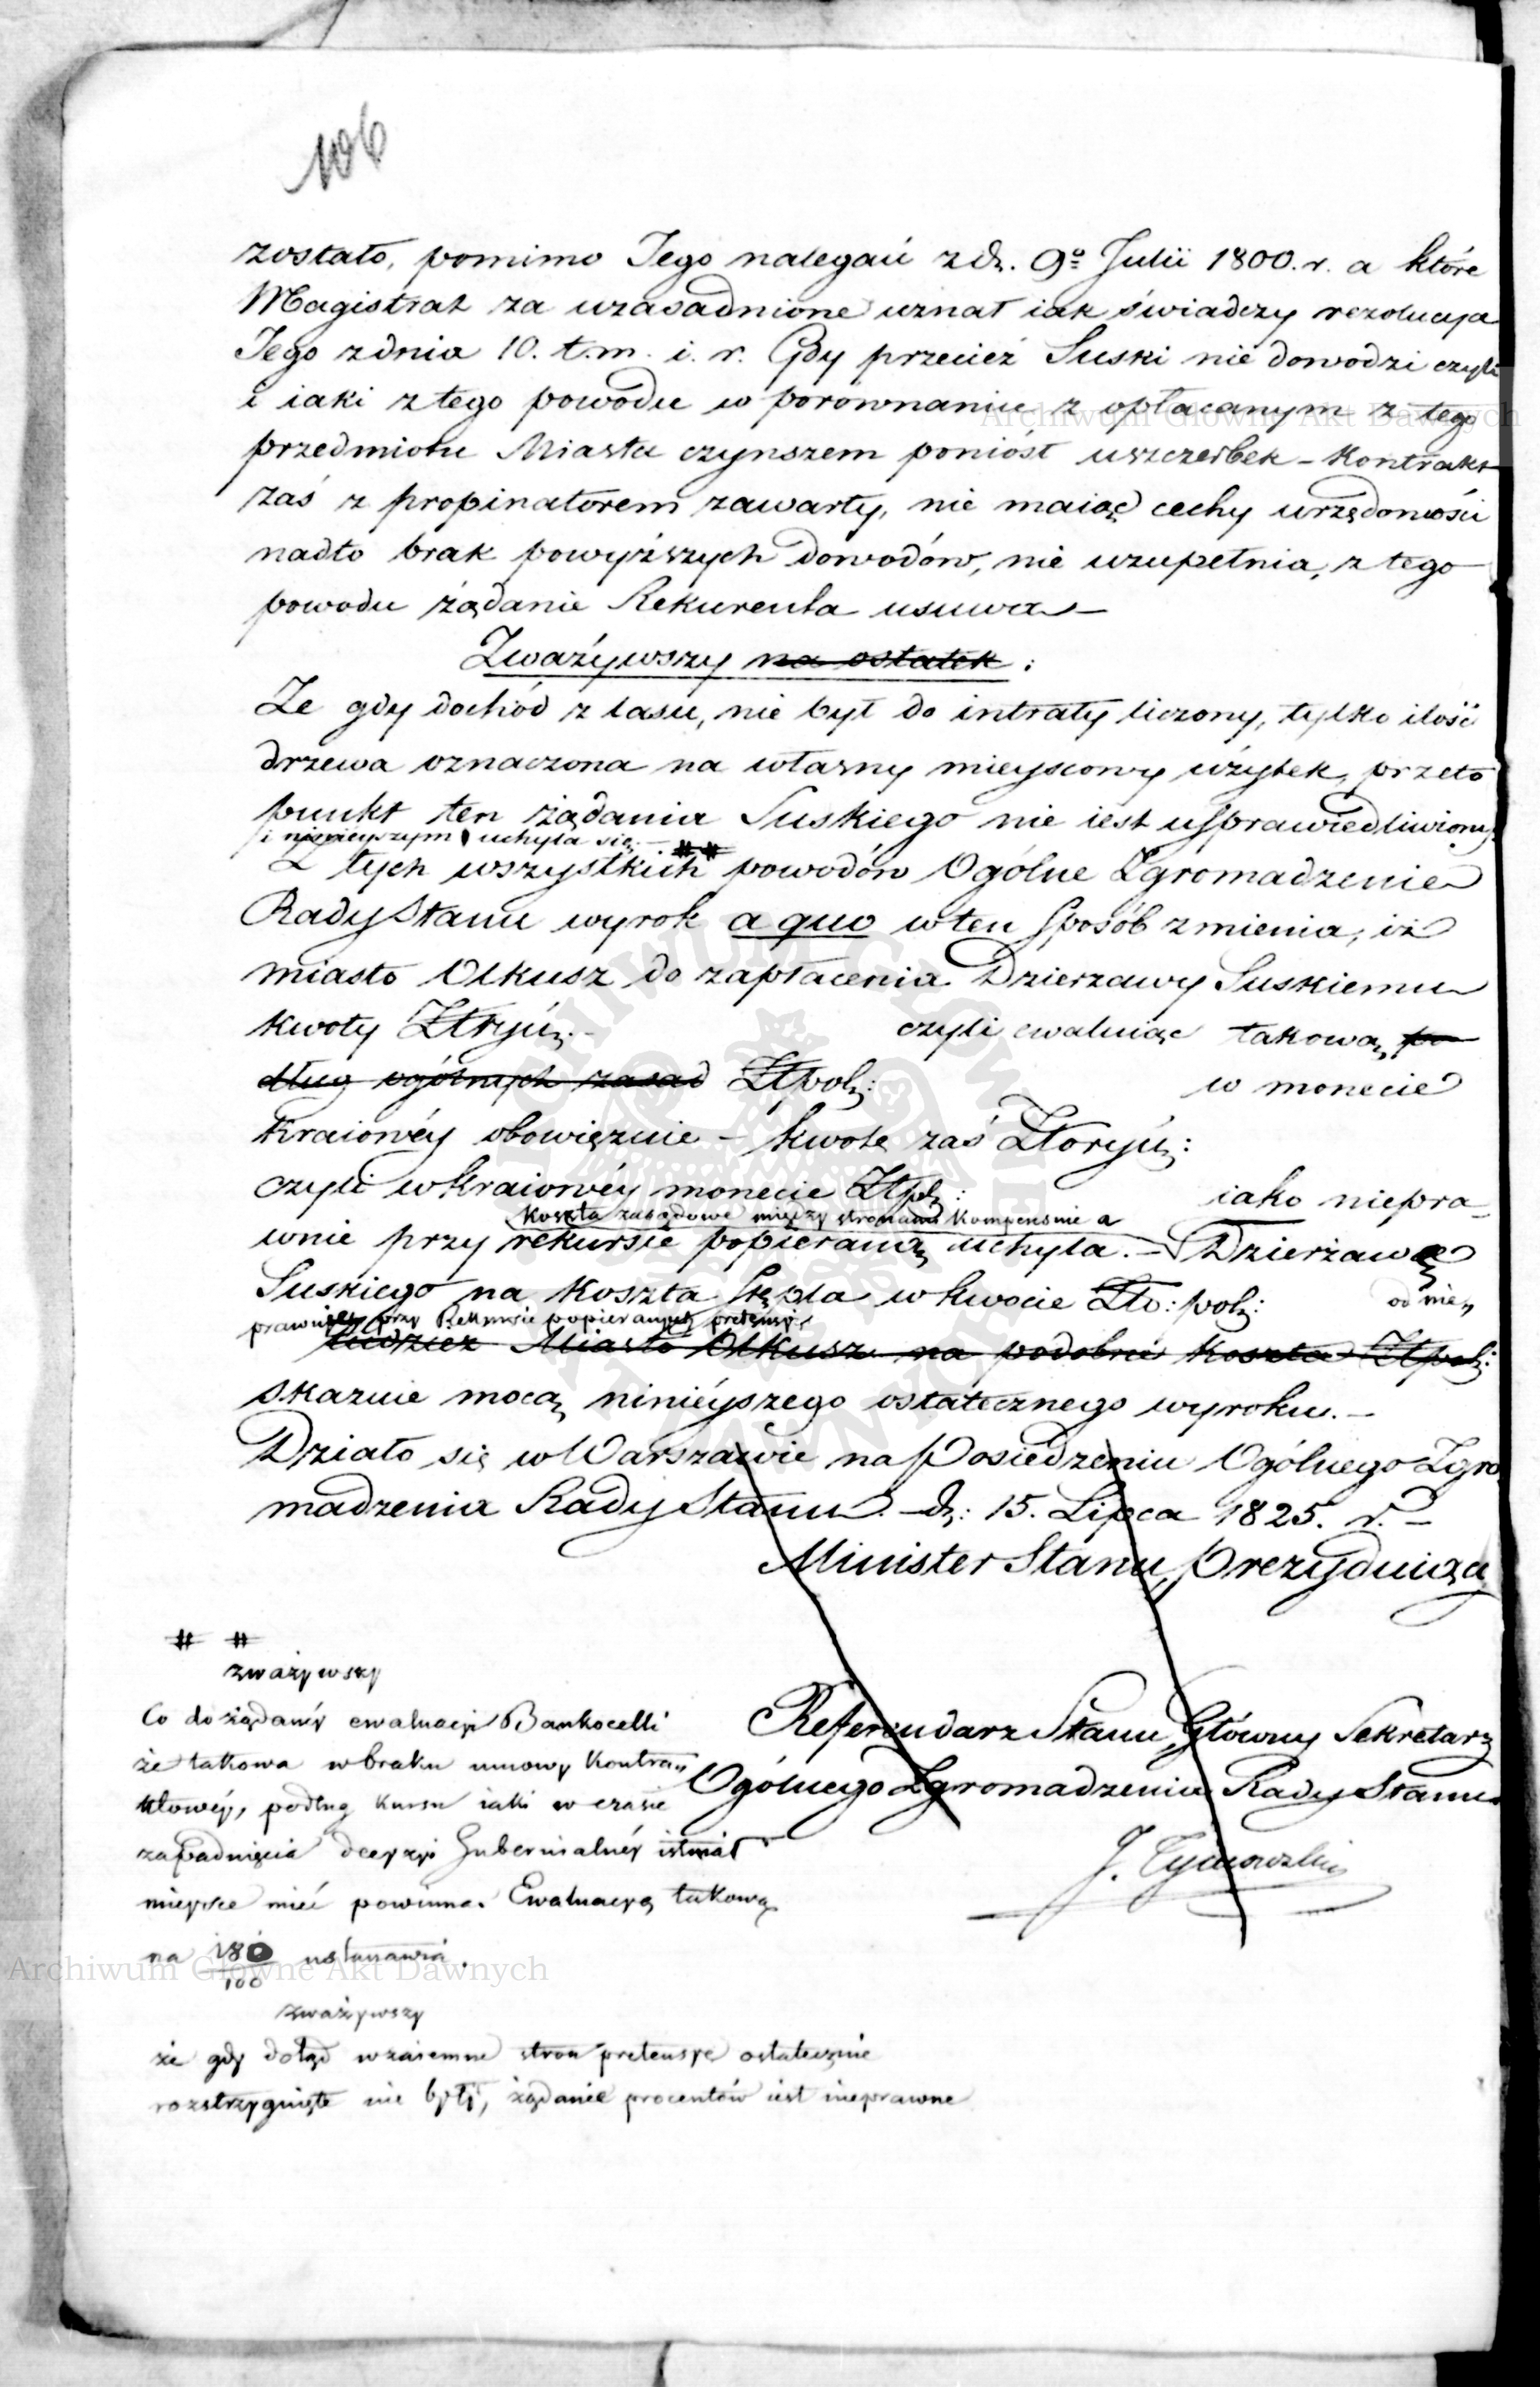 106
zostało, pomimo Jego nalegań z d. 9º Julii 1800. r. a które
Magistrat za uzasadnione uznał iak świadczy rezolucya
Jego z dnia 10. t. m. i. r. Gdy przecież Suski nie dowodzi czyli
i iaki z tego powodu w porównaniu z opłacanym z tego
przedmiotu Miastu czynszem poniósł uszczerbek – kontrakt
zaś z propinatorem zawarty, nie maiąc cechy urzędowości
nadto brak powyższych dowodów, nie uzupełnia, z tego
powodu żądanie Rekurenta usuwa –
Zważywszy na ostatek:
Że gdy dochód z lasu, nie był do intraty liczony, tylko ilość
drzewa oznaczona na własny mieyscowy użytek, przeto
punkt ten żądania Suskiego nie iest usprawiedliwiony
i ninieyszym uchyla się. –
Z tych wszystkich ## powodów Ogólne Zgromadzenie
Rady Stanu wyrok a quo w ten sposób zmienia, iż
miasto Olkusz do zapłacenia Dzierzawcy Suskiemu
kwoty Złtryń: – czyli ewaluiąc takową po
dług ogólnych zasad Złpol: w monecie
Kraiowéy obowięzuie – kwotę zaś Złoryń:
czyli w kraiowéy monecie Złpol: iako niepra-
koszta zasądowe między stronami kompensuie a
wnie przy rekursie popieraną uchyla. – Dzierżawcę
Suskiego na koszta stępla w kwocie Zło: pol: od nie„
prawnie przy Rekursie popieranych pretensyi
tudzież Miasto Olkusz na podobné koszta Złpol:
skazuie mocą ninieyszego ostatecznego wyroku. –
Działo się w Warszawie na Posiedzeniu Ogólnego Zgro
madzenia Rady Stanu. – d: 15. Lipca 1825. r. –
Minister Stanu, Prezyduiący
# #
zważywszy
Co do żądanéy ewaluacyi Bankocetli
że takowa w braku umowy kontra„
ktowéy, podług kursu iaki w czasie
zapadnięcia decyzyi Gubernialnéy istniał
mieysce mieć powinna. Ewaluacyą takową
na 180/100 ustanawia.
zważywszy
że gdy dotąd wzaiemne stron pretensye ostatecznie
rozstrzygnięte nie były, żądanie procentów iest nieprawne
Referendarz Stanu, Główny Sekretarz
Ogólnego Zgromadzenia Rady Stanu
J. Tymowski
Archiwum Główne Akt Dawnych
Archiwum Główne Akt Dawnych
ARCHIWUM GŁÓWNE AKT DAWNYCH